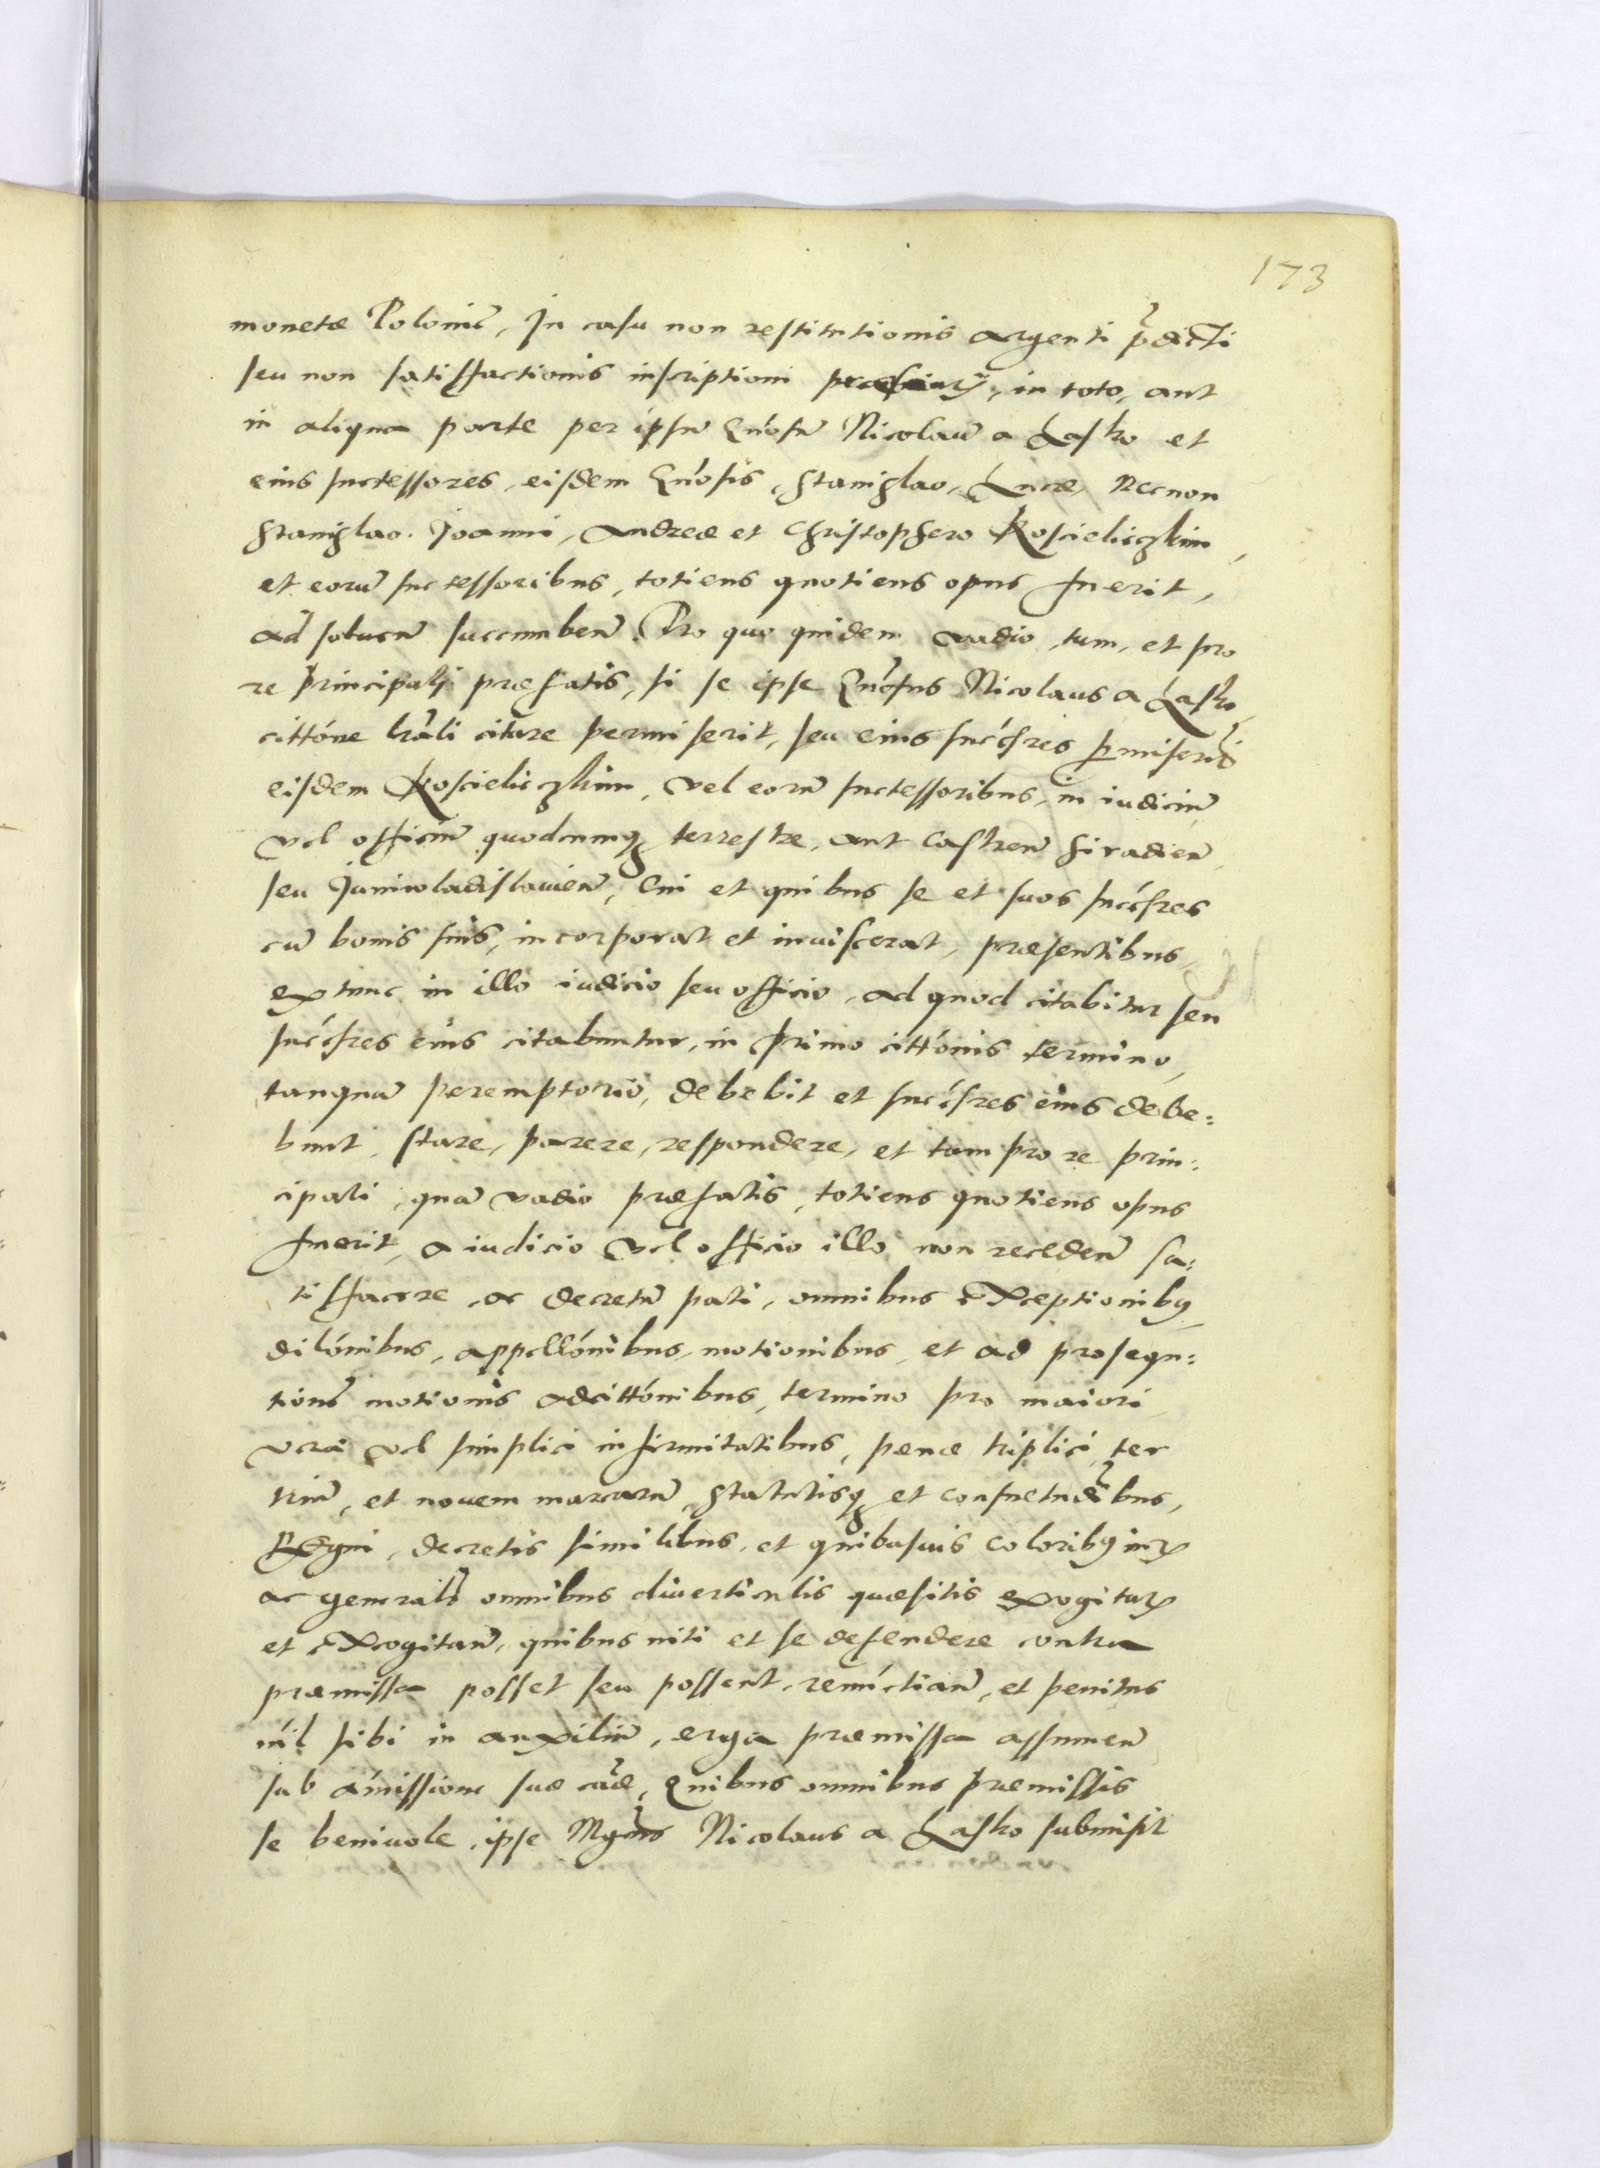 173
monetæ Poloniē, In casu non restitutionis argenti p̄dicti
seu non satisffactionis inscriptioni in toto, aut
in aliqua parte per ipsū Gn̄osū Nicolaū a Lasko et
eius successores, eisdem Gn̄osis, Stanislao, Lucæ, Necnon
Stanislao. Joanni, Andreæ et Christophero Koscieliczkim,
et eorū successoribus, totiens quotiens opus fuerit,
ad soluen̄ succumben̄. Pro quo quidem vadio, tum, et pro
re principali præfatis, si se ipse Gn̄osus Nicolaus a Lasko
cittóne l̄rali citare permiserit, seu eius succ̄sres p̄miserīt
eisdem Koscieliczkim, vel eorū successoribus, in iudiciū
vel officiū quodcumq; terrestre, aut Castren̄ Siradien̄
seu Juniwladislauien̄, Cui et quibus se et suos succ̄sres
cū bonis suis, incorporat et inuiscerat, præsentibus,
ex tunc in illo iudicio seu officio, ad quod citabitur seu
succ̄sres eius citabuntur, in primo cittónis termino,
tanquā peremptorio, debebit et succ̄sres eius debe:
bunt, stare, parere, respondere, et tam pro re prin:
cipali, quā vadio præfatis, totiens quotiens opus
fuerit, a iudicio vel officio illo non receden̄ sa:
tisffacere, ac decretū pati, omnibus exceptionib9
dilónibus, appellónibus, motionibus, et ad prosequ:
tionē motionis adcittónibus, termino pro maiori
vera vel simplici infirmitatibus, pœnæ triplici, ter
triū, et novem marcarū, statutisq; et consuetud̄ibus,
Regni, decretis similibus, et quibusuis colorib9 iurꝝ
ac generalr̄ omnibus diuerticulis quæsitis exogitatꝝ
et excogitan̄, quibus niti et se defendere contra
præmissa posset seu possent, renúctian̄, et penitus
níl sibi in auxiliū, erga præmissa assumen̄
sub ámissione suæ cāæ, Quibus omnibus præmissis
se beniuole, ipse Mgn̄s Nicolaus a Lasko submisit